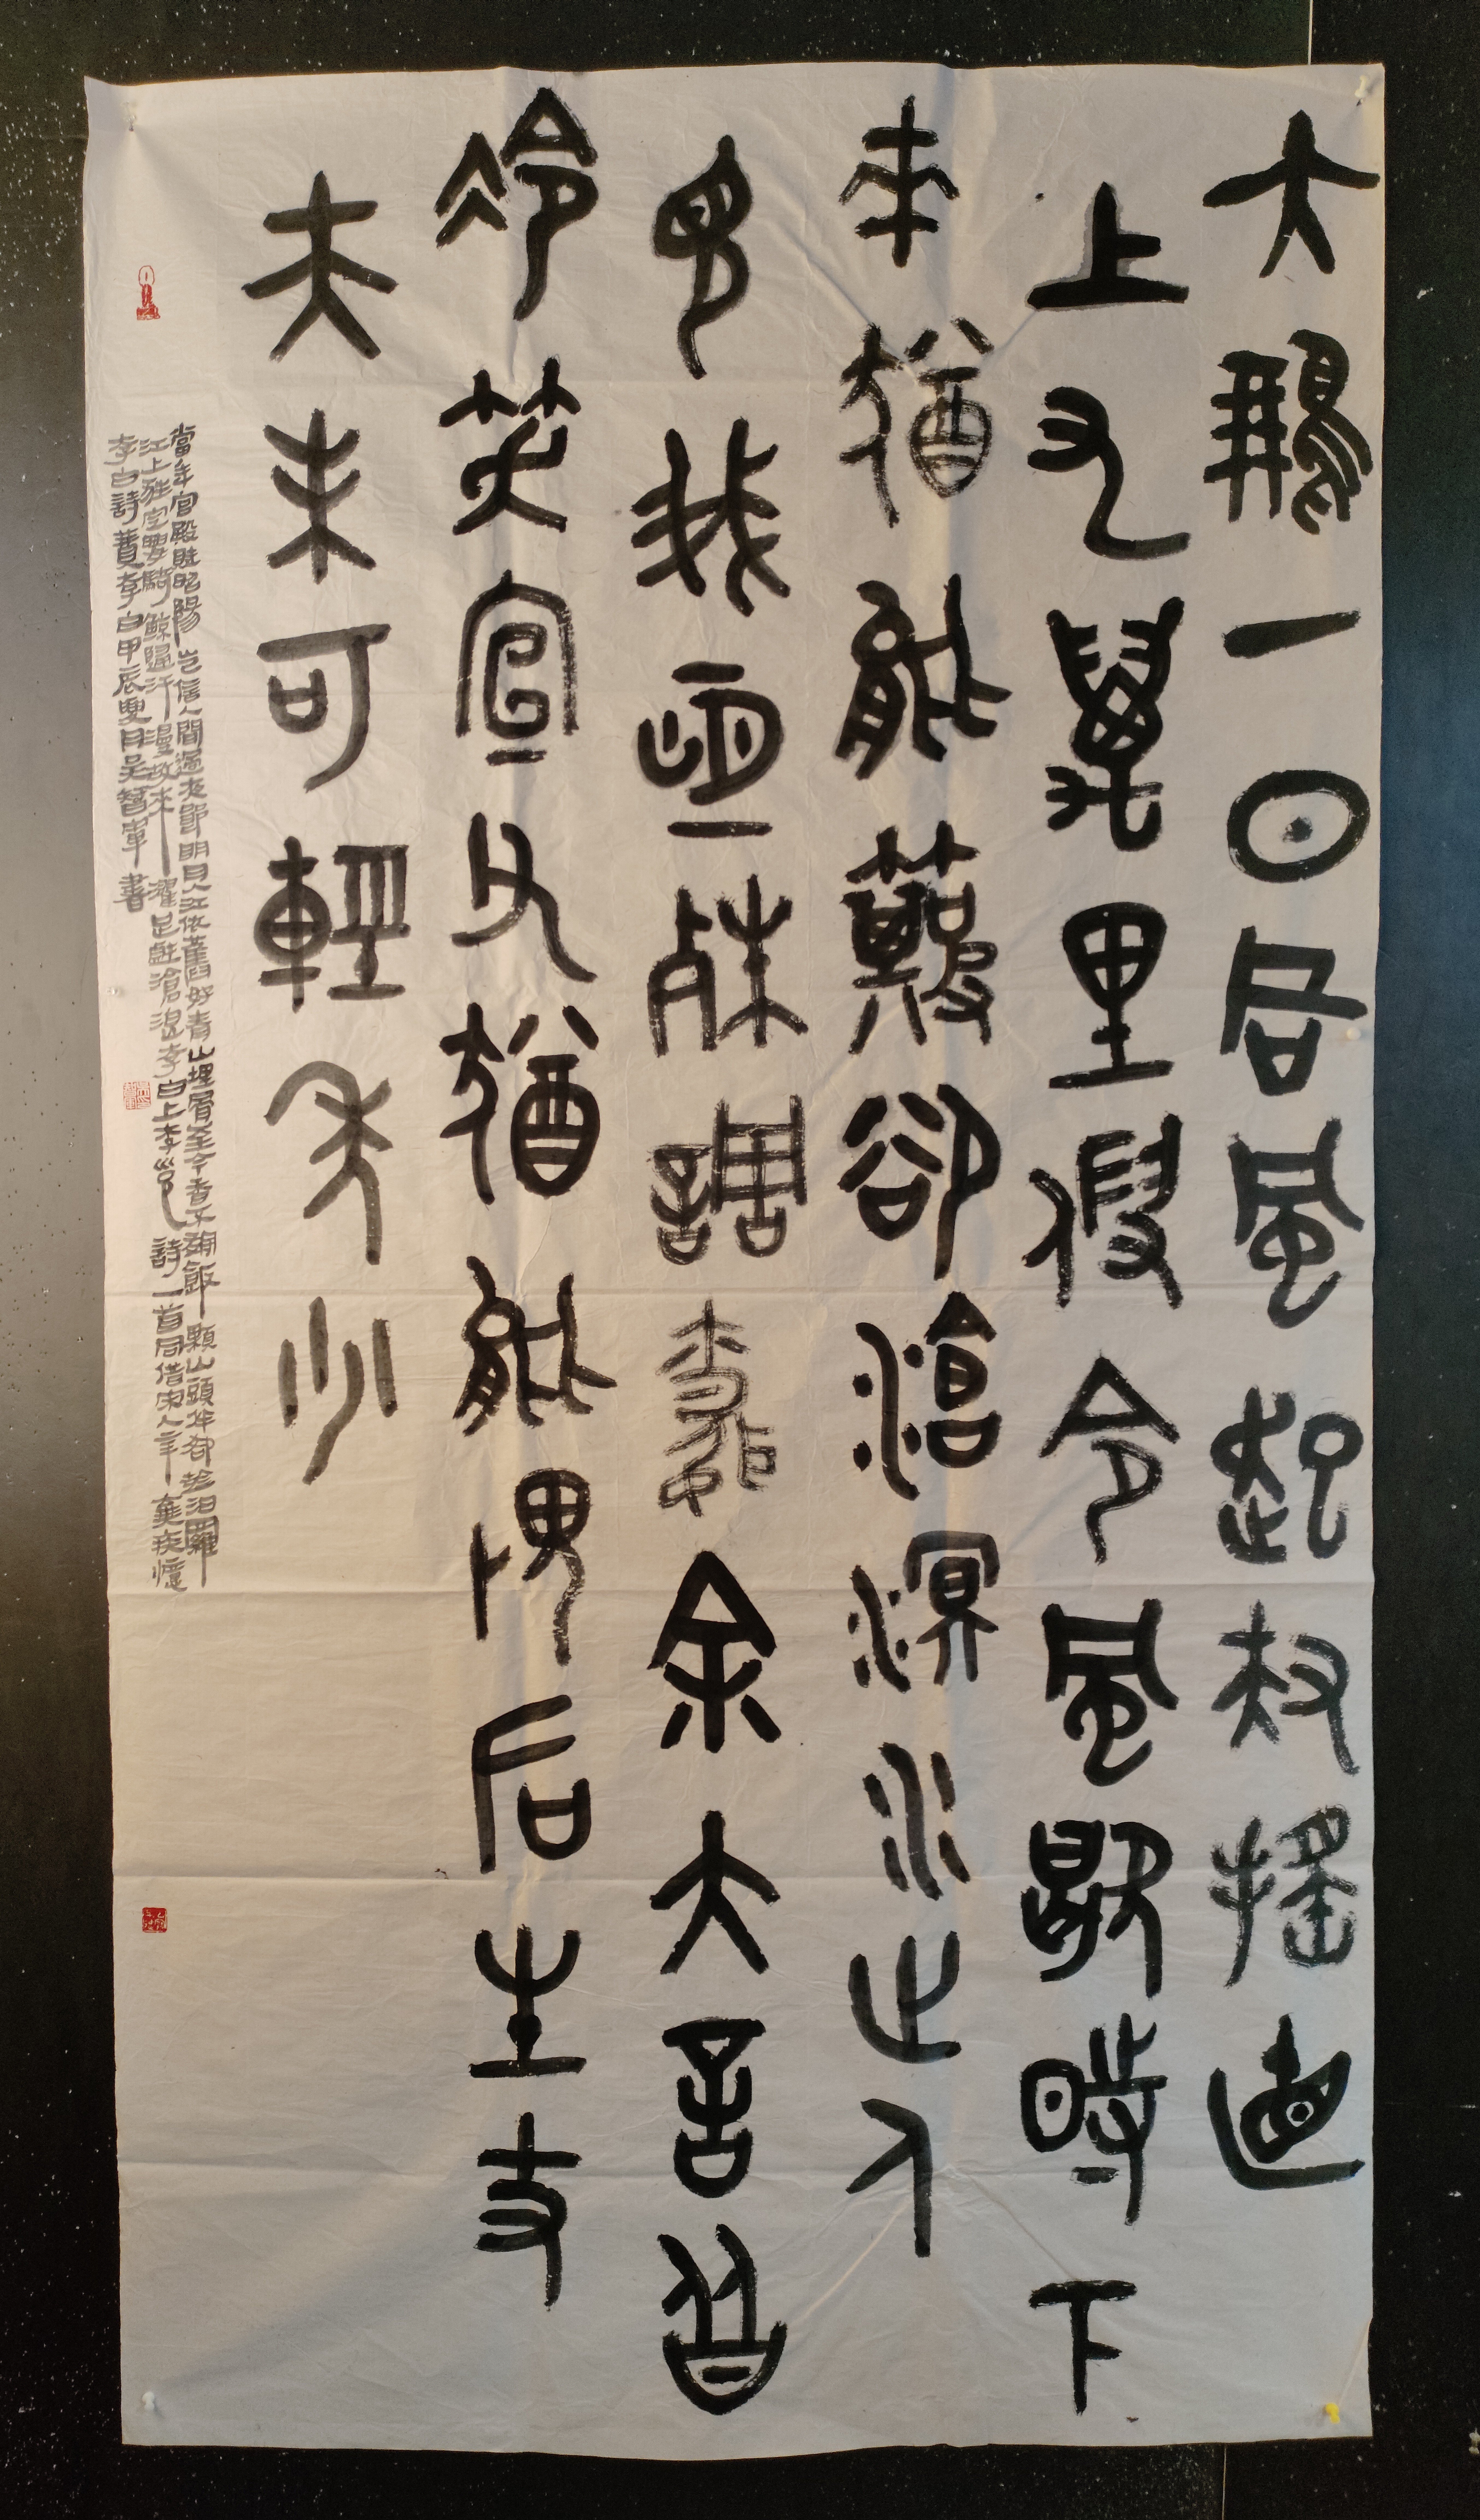 大鵬一日同風起扶搖直
上九萬里假令風歇時下
來猶能簸卻滄溟水世人
見我恆殊調聞余大言皆
冷笑宣父猶能畏后生丈
夫未可輕年少
當年宮殿賦昭陽豈信人間過夜郎明月入江依舊好青山埋骨至今香不尋飯顆山頭伴却趁汨羅
江上狂定要騎鯨歸汗漫故來濯足戲滄浪李白上李邕詩一首同借宋人辛棄疾憶
李白詩贊李白甲辰夏月吴智軍書